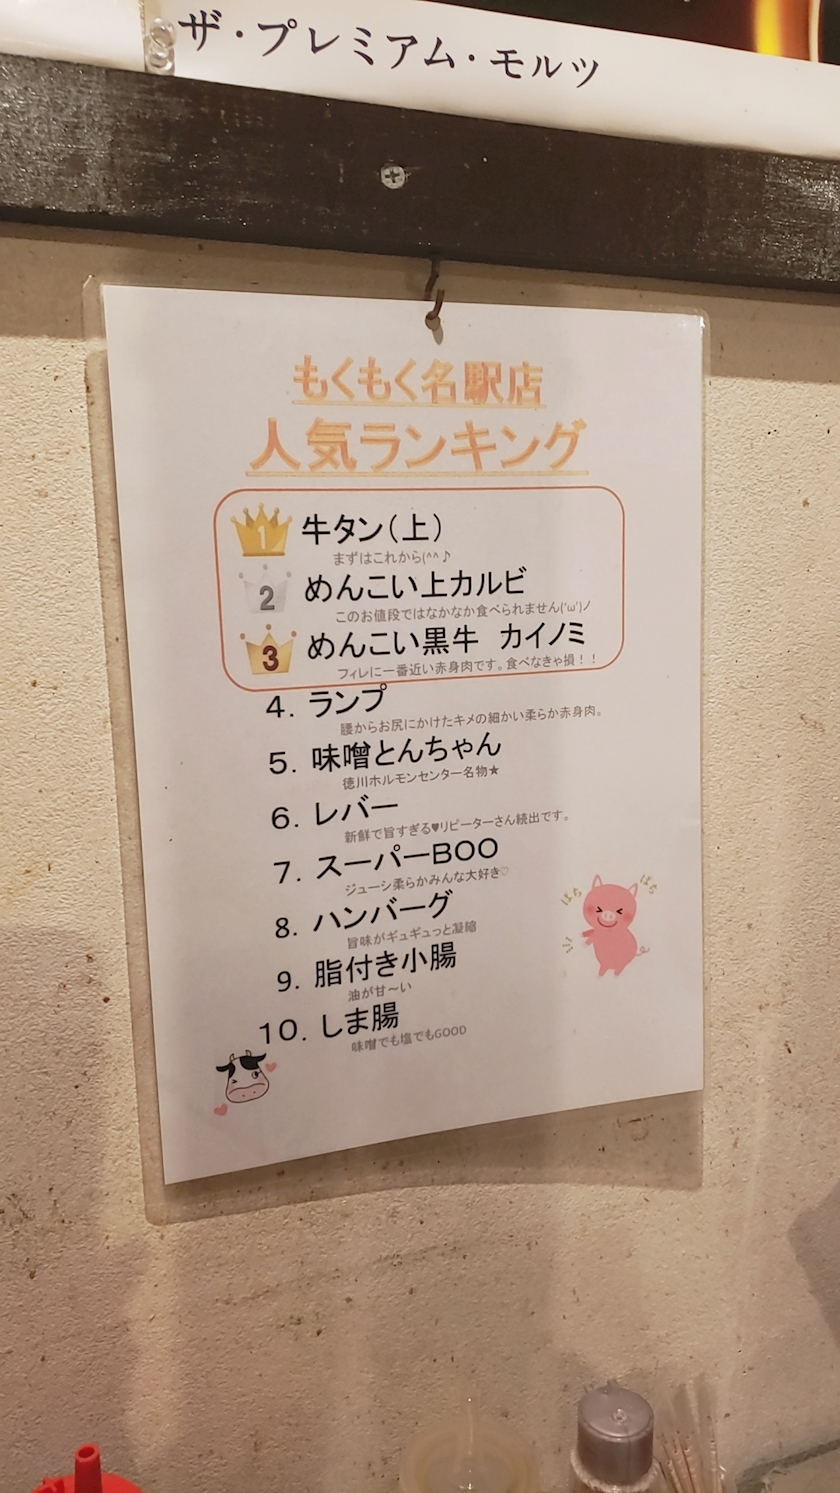 ザ・プレミアム・モルツ
もくもく名駅店
人気ランキング
1 牛タン(上)
まずはこれから(^^♪
2 めんこい上カルビ
このお値段ではなかなか食べられません('ω')ノ
3 めんこい黒牛 カイノミ
フィレに一番近い赤身肉です。食べなきゃ損！！
4. ランプ
腰からお尻にかけたキメの細かい柔らか赤身肉。
5. 味噌とんちゃん
徳川ホルモンセンター名物★
6. レバー
新鮮で旨すぎる♥リピーターさん続出です。
7. スーパーBOO
ジューシ柔らかみんな大好き♡
8. ハンバーグ
旨味がギュギュっと凝縮
ぱち ぱち
9. 脂付き小腸
油が甘～い
10. しま腸
味噌でも塩でもGOOD